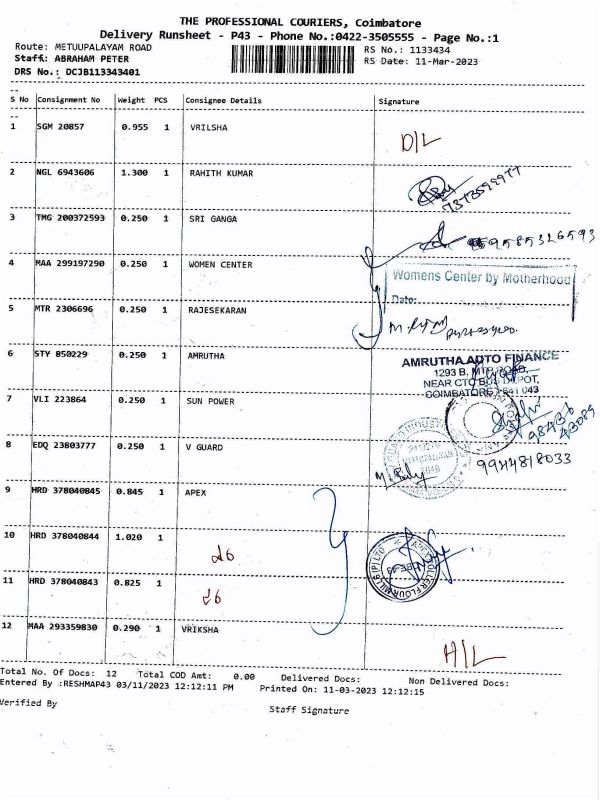 THE PROFESSIONAL COURIERS, Coimbatore
Delivery Runsheet - P43 - Phone No.:0422-3505555 - Page No.:1
Route: METUUPALAYAM ROAD
RS No.: 1133434
Staff: ABRAHAM PETER
RS Date: 11-Mar-2023
DRS No.: DCJB113343401
S No Consignment No Weight PCS Consignee Details Signature
1 SGM 20857 0.955 1 VRILSHA
D/L
2 NGL 6943606 1.300 1 RAHITH KUMAR
3 TMG 200372593 0.250 1 SRI GANGA
9585326593
4 MAA 299197290 0.250 1 WOMEN CENTER
Womens Center by Motherhood
Date:
5 MTR 2306696 0.250 1 RAJESEKARAN
6 STY 850229 0.250 1 AMRUTHA
AMRUTHA AUTO FINANCE
1293 B, MTP ROAD,
NEAR CTC BUS DEPOT,
COIMBATORE - 641 043
7 VLI 223864 0.250 1 SUN POWER
98436
43089
8 EDQ 23803777 0.250 1 V GUARD
9944818033
9 HRD 378040845 0.845 1 APEX
10 HRD 378040844 1.020 1
d6
11 HRD 378040843 0.825 1
d6
12 MAA 293359830 0.290 1 VRIKSHA
H/L
Total No. Of Docs: 12 Total COD Amt: 0.00 Delivered Docs: Non Delivered Docs:
Entered By :RESHMAP43 03/11/2023 12:12:11 PM Printed On: 11-03-2023 12:12:15
Verified By
Staff Signature